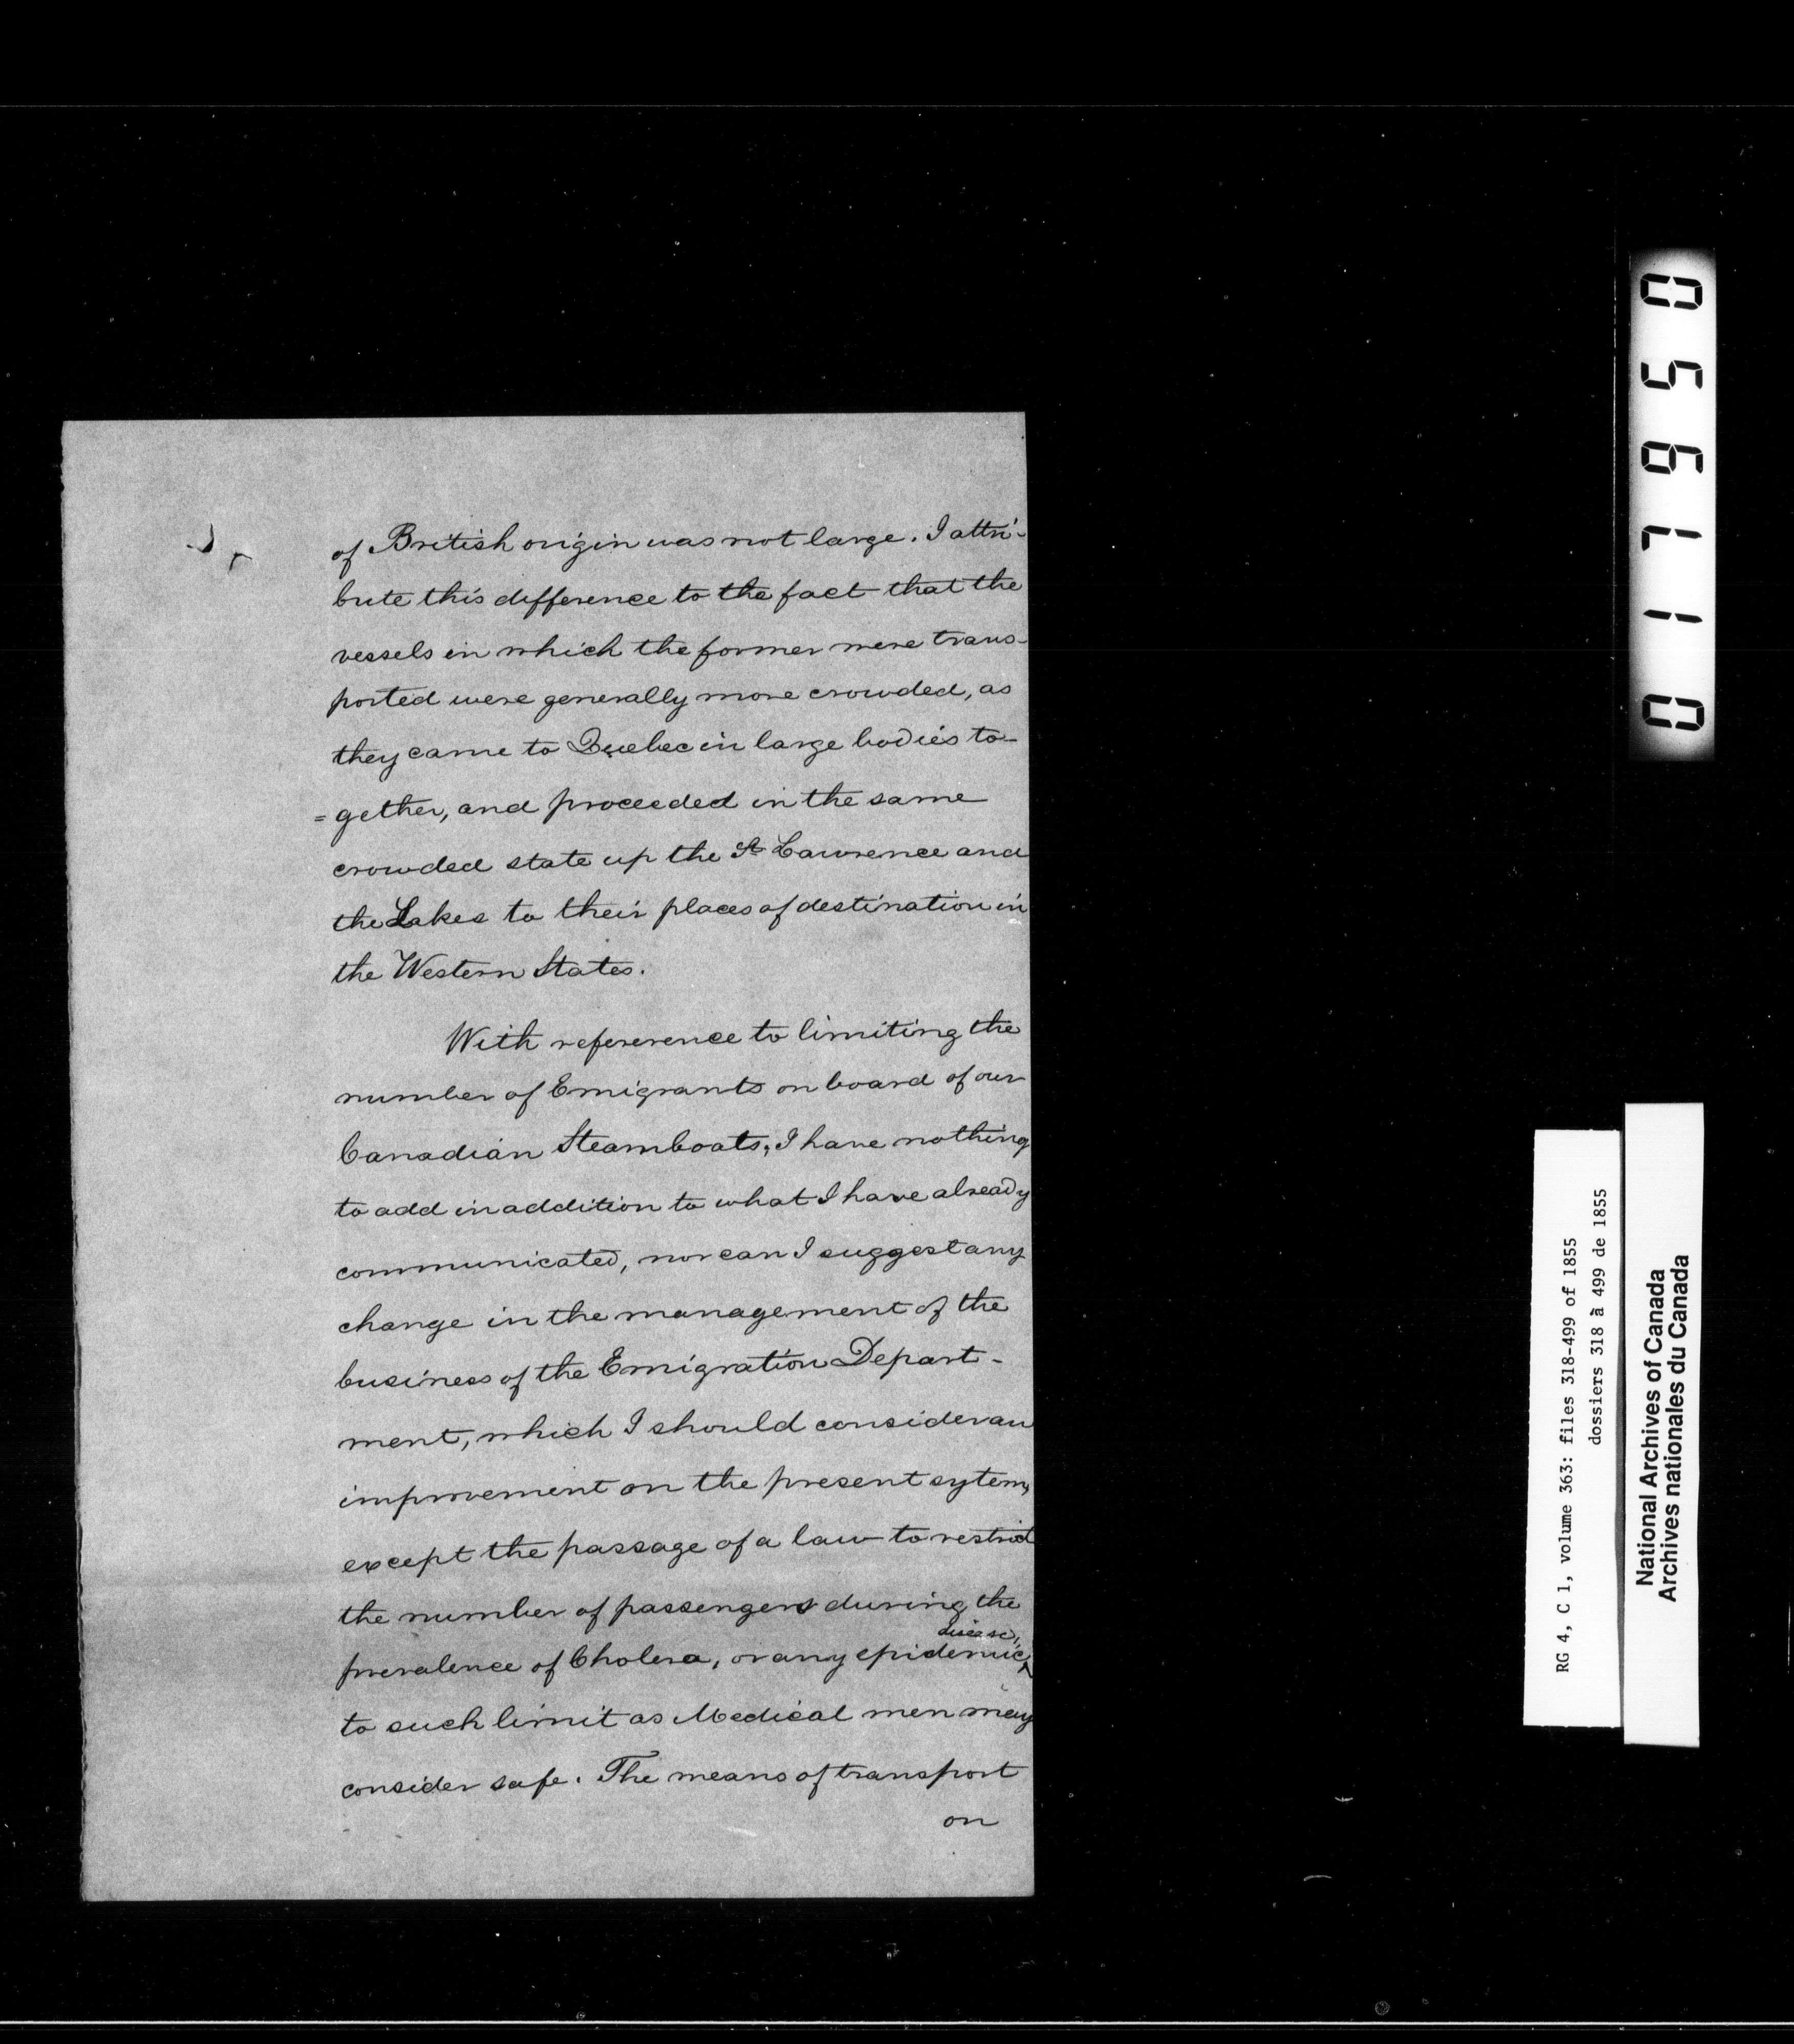 of British origin was not large. I attri-
bute this difference to the fact that the
vessels in which the former were trans-
ported were generally more crowded, as
they came to Quebec in large bodies to-
=gether, and proceeded in the same
crowded state up the St Lawrence and
the Lakes to their places of destination in
the Western States.
With refererence to limiting the
number of Emigrants on board of our
Canadian Steamboats, I have nothing
to add in addition to what I have already
communicated, nor can I suggest any
change in the management of the
business of the Emigration Depart-
ment, which I should consider an
improvement on the present sytem,
except the passage of a law to restrict
the number of passengers during the
disease,
prevalence of Cholera, or any epidemic ^
to such limit as Medical men may
consider safe. The means of transport
on
017650
RG 4, C 1, volume 363: files 318-499 of 1855
dossiers 318 à 499 de 1855
National Archives of Canada
Archives nationales du Canada